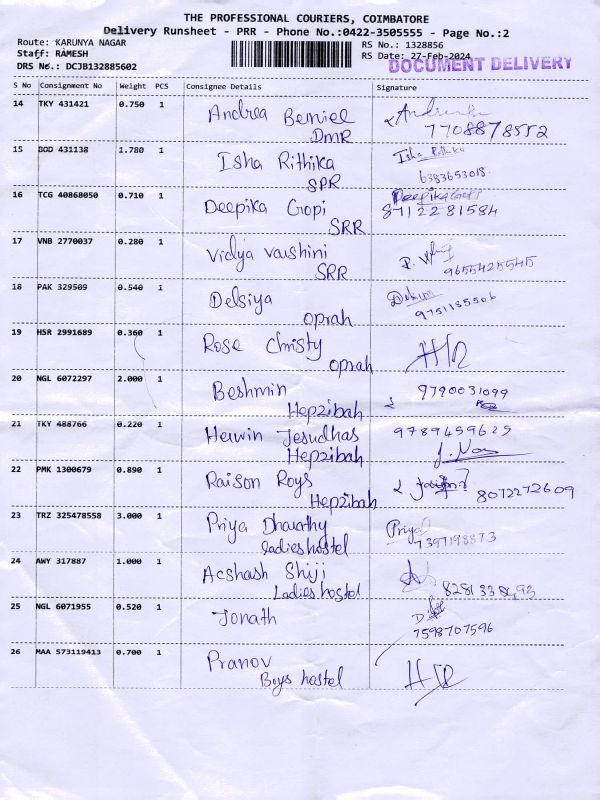 THE PROFESSIONAL COURIERS, COIMBATORE
Delivery Runsheet - PRR - Phone No.:0422-3505555 - Page No.:2
Route: KARUNYA NAGAR
Staff: RAMESH
DRS No.: DCJB132885602
RS No.: 1328856
RS Date: 27-Feb-2024
DOCUMENT DELIVERY
S No Consignment No Weight PCS Consignee Details Signature
14 TKY 431421 0.750 1 Andrea Berniel
DMR
7708878552
15 BOD 431138 1.780 1 Isha Rithika Isha Rithika
SPR 6383653018
16 TCG 40868050 0.710 1 Deepika Gopi Deepika Gopi
SRR 8712281584
17 VNB 2770037 0.280 1 Vidya Varshini
SRR 9655425545
18 PAK 329509 0.540 1 Delsiya
oprah 9751135506
19 HSR 2991689 0.360 1 Rose Christy
oprah
20 NGL 6072297 2.000 1 Beshmin 9790031099
Hepzibah
21 TKY 488766 0.220 1 Herwin Jesudhas 9789499629
Hepzibah
22 PMK 1300679 0.890 1 Raison Roys
Hepzibah 8072272609
23 TRZ 325478558 3.000 1 Priya Dharathy Priya
ladies hostel 7397198873
24 AWY 317887 1.000 1 Acshash Shiji
Ladies hostel
25 NGL 6071955 0.520 1 Jonath
7598707596
26 MAA 573119413 0.700 1 Pranov
Boys hostel